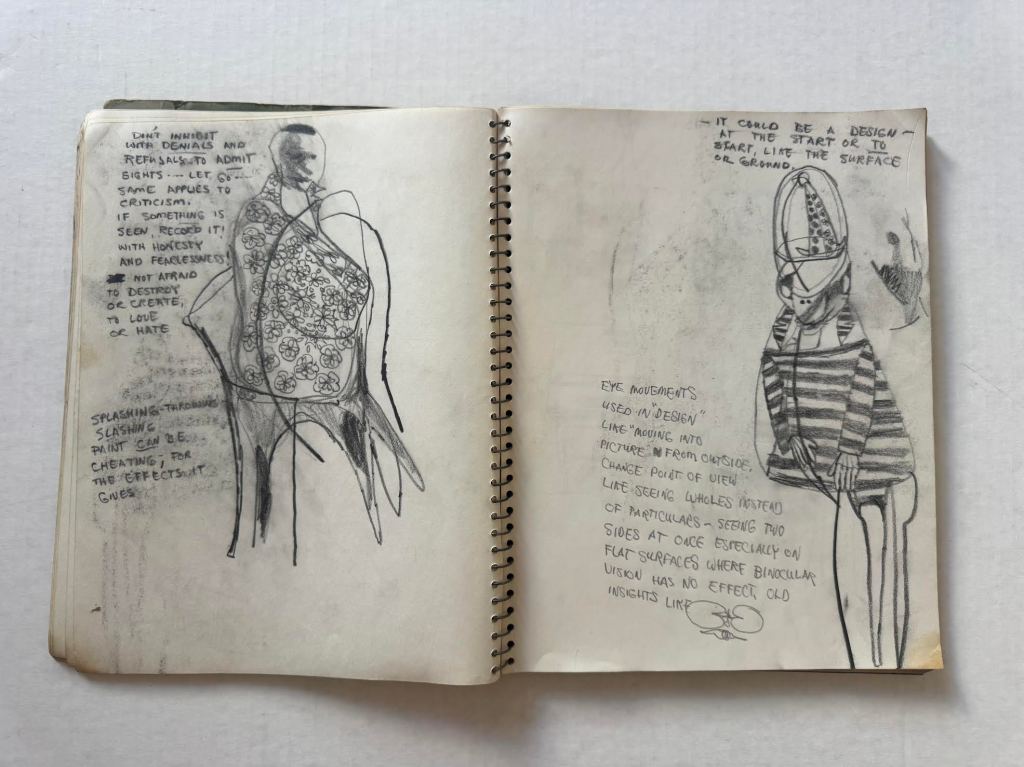 DON'T INHIBIT
WITH DENIALS AND
REFUSALS TO ADMIT
SIGHTS --- LET GO ---
SAME APPLIES TO
CRITICISM.
IF SOMETHING IS
SEEN, RECORD IT!
WITH HONESTY
AND FEARLESSNESS
NOT AFRAID
TO DESTROY
OR CREATE,
TO LOVE
OR HATE
SPLASHING-THROWING
SLASHING
PAINT CAN BE
CHEATING, FOR
THE EFFECTS IT
GIVES
- IT COULD BE A DESIGN -
AT THE START OR TO
START, LIKE THE SURFACE
OR GROUND.
EYE MOVEMENTS
USED IN "DESIGN"
LIKE "MOVING INTO
PICTURE" FROM OUTSIDE.
CHANGE POINT OF VIEW
LIKE SEEING WHOLES INSTEAD
OF PARTICULARS - SEEING TWO
SIDES AT ONCE ESPECIALLY ON
FLAT SURFACES WHERE BINOCULAR
VISION HAS NO EFFECT, OLD
INSIGHTS LIKE